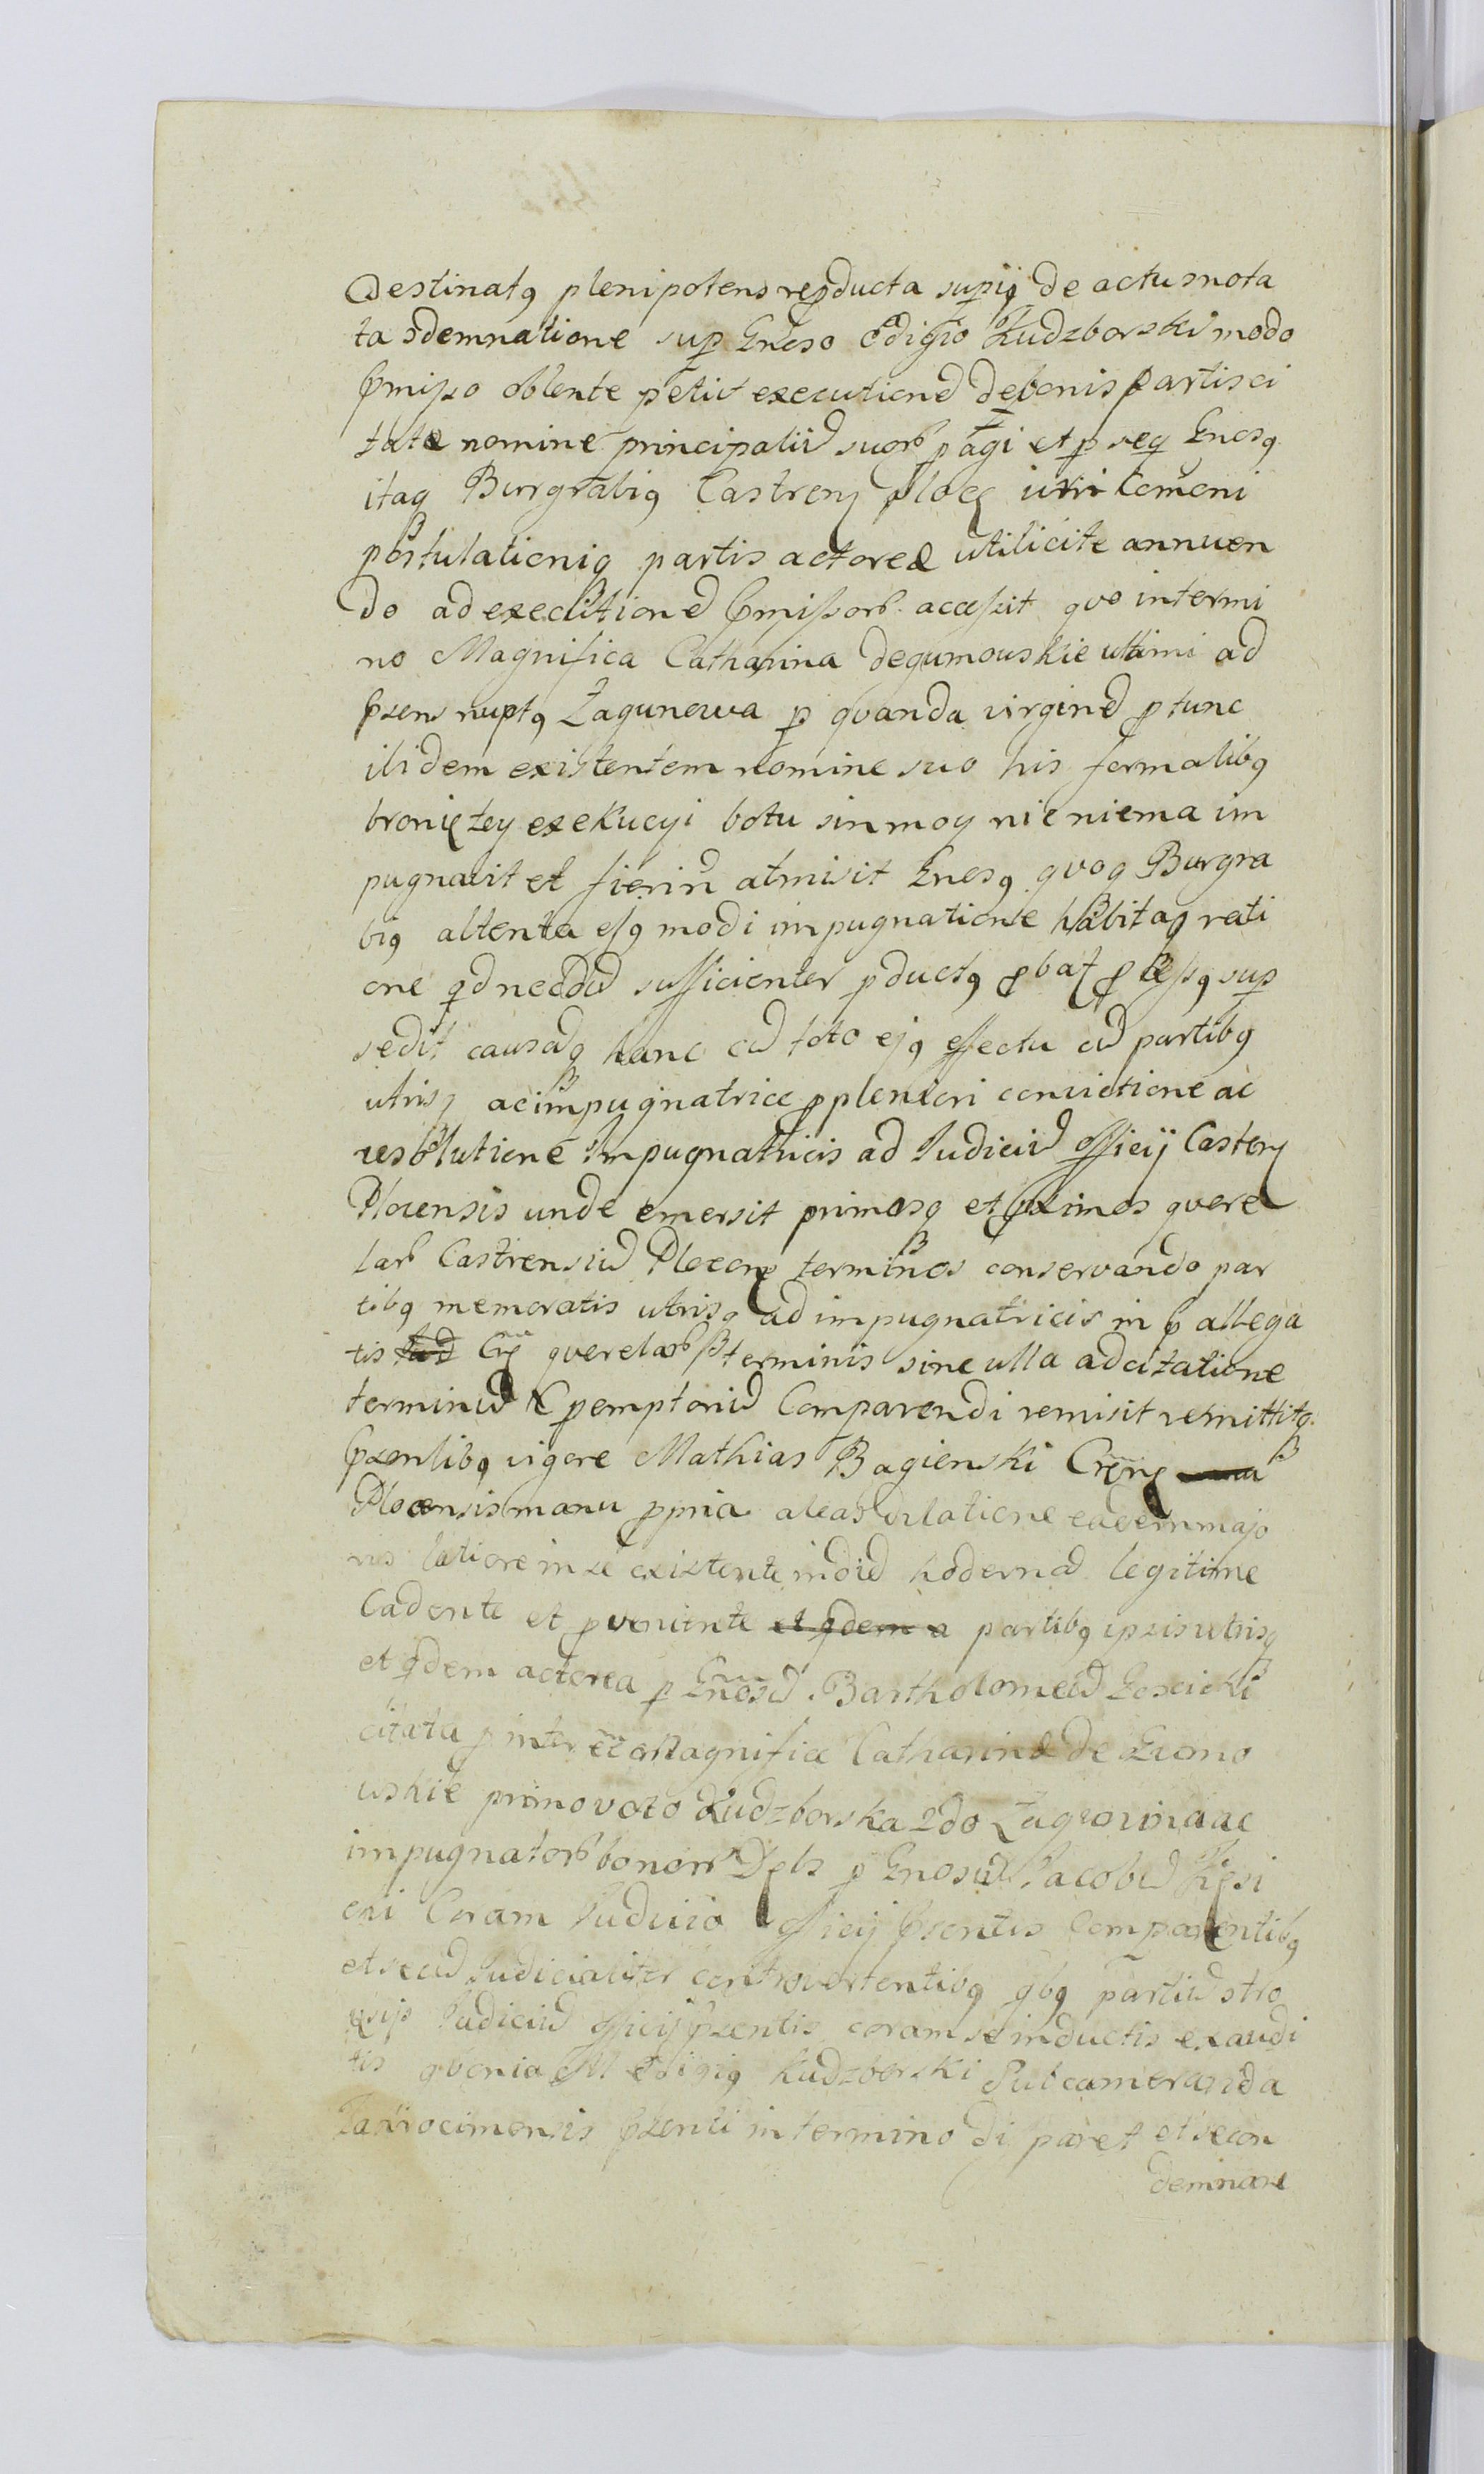 Destinatq plenipotens reproducta supiq de actu nota
ta 9demnatione sup Gnoso Ædigio Kudzborski modo
pmisso obtente petit executioned de bonis partis ci
tatæ nomine principaliud suorb p agi et p seq Gnosq
itaq Burgrabiq Castreny ploce
postulationiq partis actoreæ utilicite annuen
do ad executioned pmissorb accessit quo in termi
no Magnifica Catharina degumowskie ultimi ad
psens nuptq Zagunowa p quanda virgined ptunc
ibidem existentem nomine suo his formalibq
bronię tey exekucyi botu sinmoy nic niema im
pugnavit et fieri n̄ admisit Gnosq quoq Burgra
biq attenta ejq modi impugnatione habitaq rati
one qd necdud sufficienter pductq pbat pcessq sup
sedit causadq hanc cud toto ejq effectu cud partibq
utrisq ac impugnatrice p pleniori convictione ac
resolutione impugnatricis ad Judiciud officij Castreny
Plocensis unde emersit primosq et pximos quere
larb Castrensiud Plocens terminos conservando par
tibq memoratis utrisq ad impugnatricis in p allega
tis querelarb terminis sine ulla adcitatione
terminud pemptoriud Comparendi remisit remittitq
psentibq vigore Mathias Bagienski
Plocensis manu ppria aleat dilatione eadem majo
ris latiore in se existente in died hoderna legitime
Cadente et pveniente et qdem a partibq ipsis utrisq
et qdem actorea p Gnosud Bartholomeud Goscicki
citata p inter Magnificæ Catharinæ de Gumo
wskie primo voto Kudzborska 2do Zagunowa ac
impugnatorb bonorb p Gnosud Jacobud
Coram Judicio officij psentis Comparentibq
et secud Judicialiter controvertentibq qbq partiud
Judiciud officij psentis coram se inductis exaudi
tis qvonia M Edigiq Kudzborski Subcameranda
psenti in termino di paret et se con
demnare